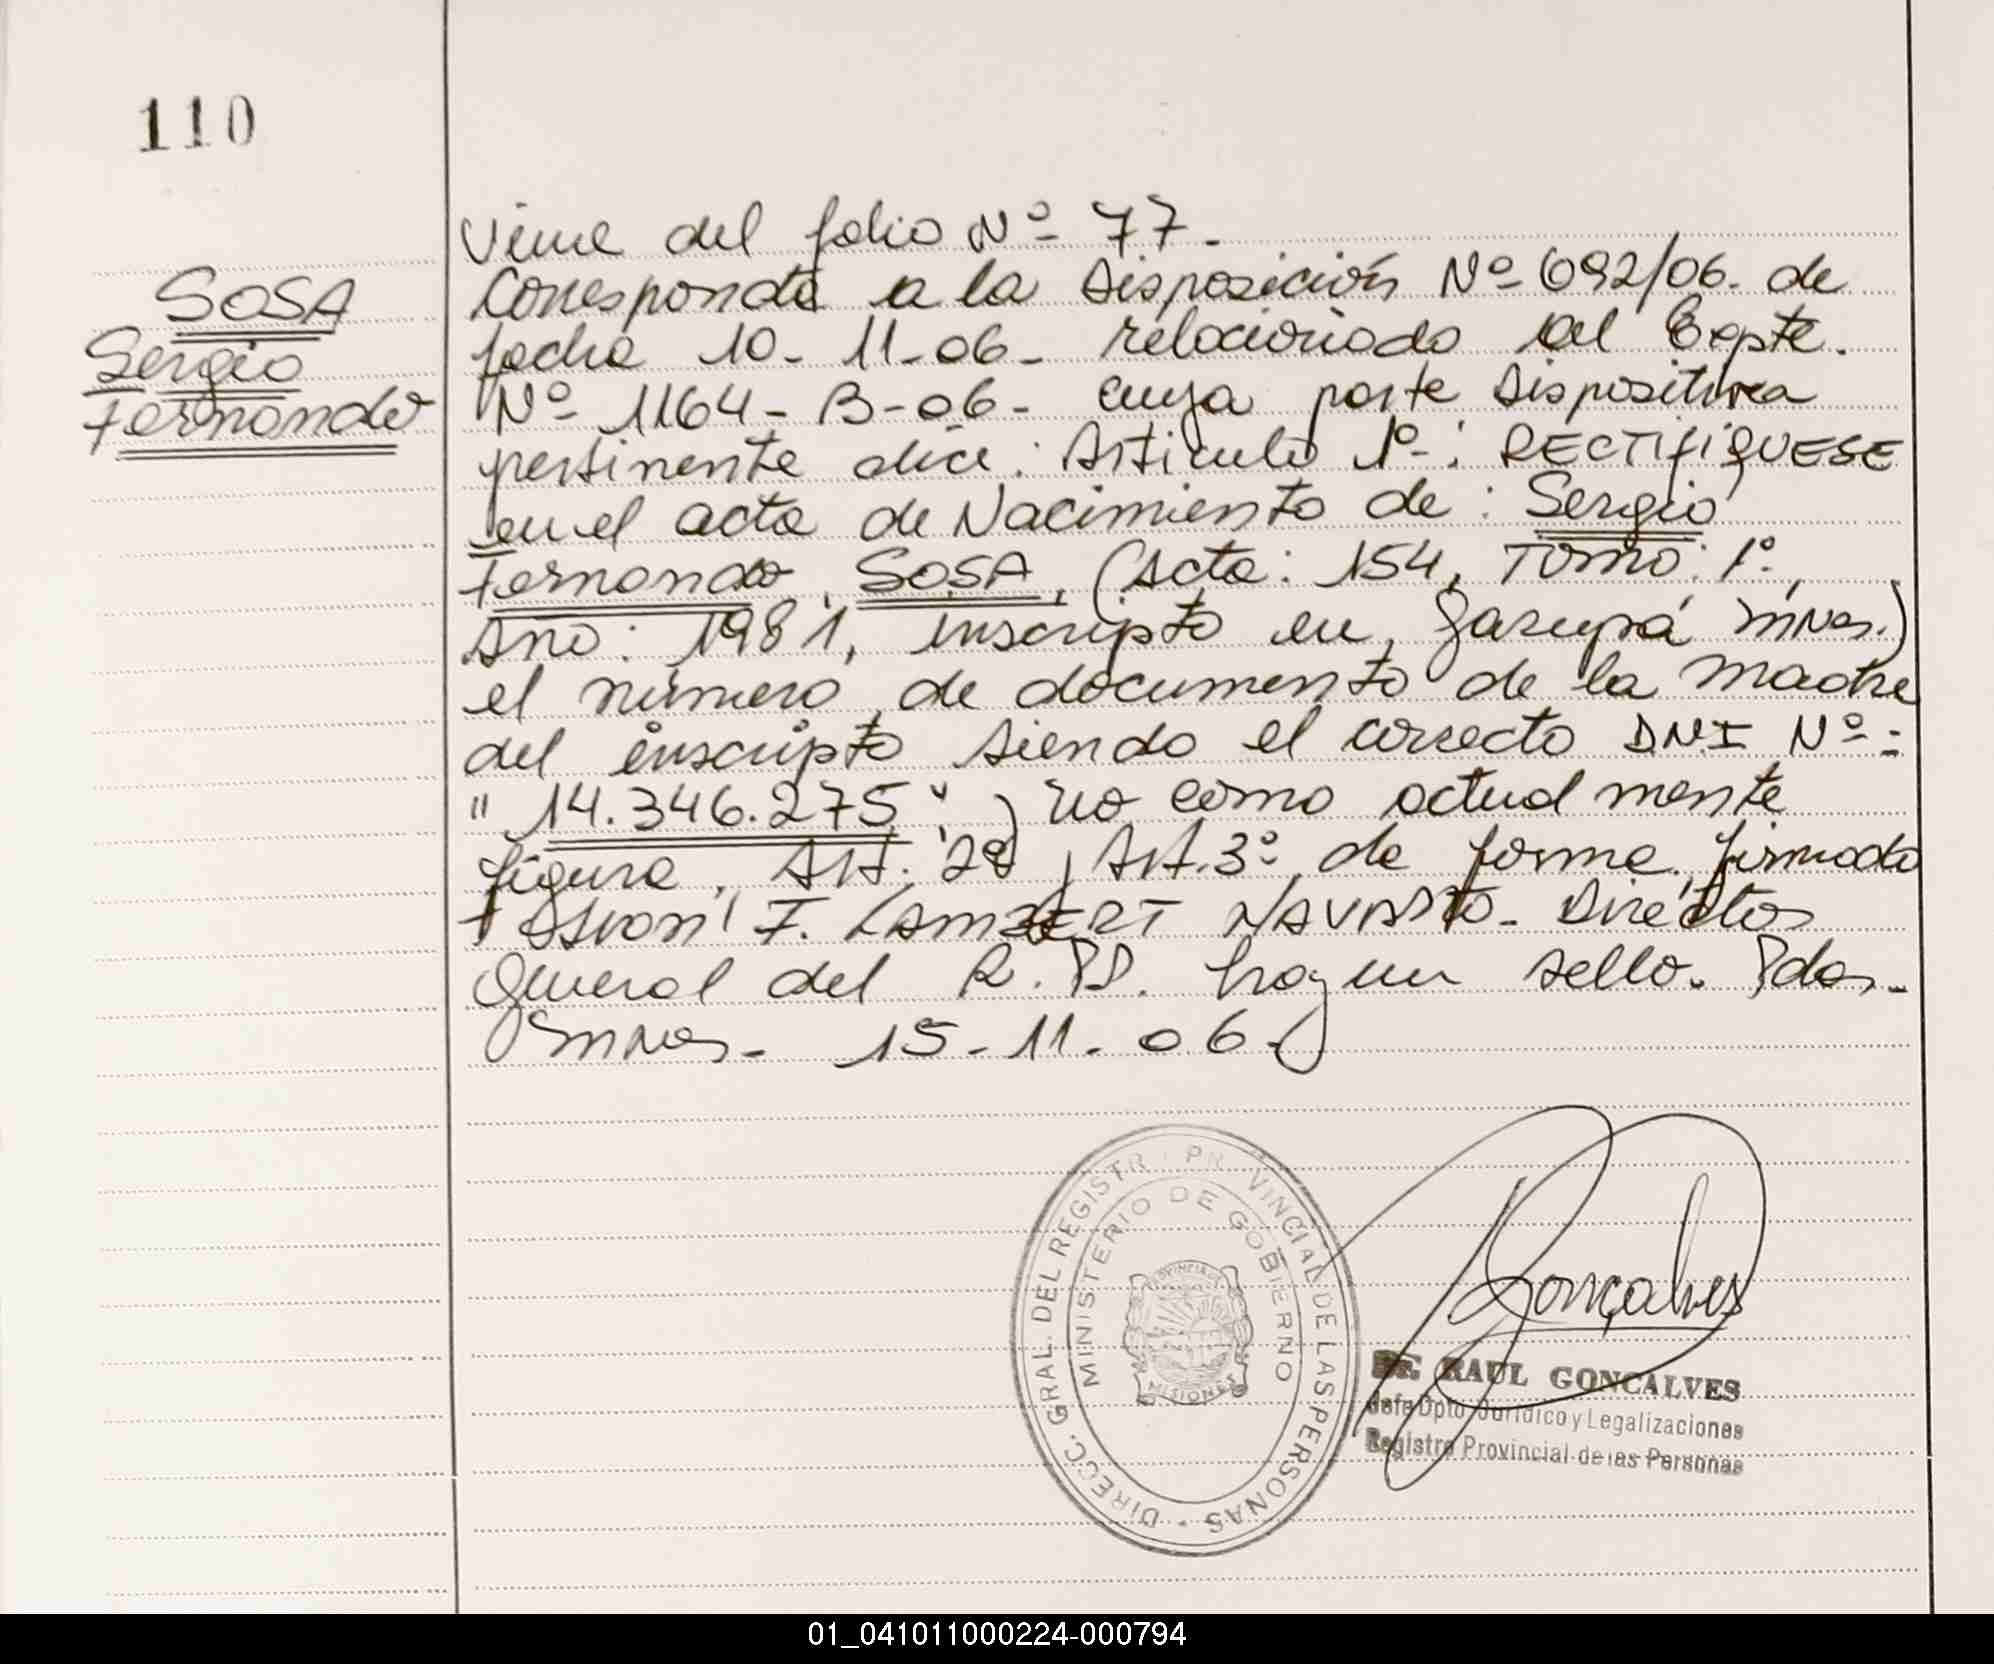 110
SOSA
Sergio
Fernando
Viene del folio Nº 77.-
Corresponde a la Disposición Nº 092/06. de
fecha 10-11-06- relacionado al Expte.
Nº 1164-B-06- cuya parte dispositiva
pertinente dice: Artículo 1º-: RECTIFIQUESE
en el acta de Nacimiento de: Sergio
Fernando, SOSA, (Acta: 154, Tomo: 1º,
Año: 1981, inscripto en, Garupá Mnes.)
el número, de documento de la madre
del inscripto siendo el correcto DNI Nº-:
"14.346.275", no como actualmente
figura, Art. 2º, Art. 3º de forma, firmado
F. LAMBERT NAVARRO- Director
General del R.P.P. hay un sello. Pdas-
Mnes- 15-11-06-
DIRECC. GRAL. DEL REGISTR PR VINCIAL DE LAS PERSONAS
MINISTERIO DE GOBIERNO
PROVINCIA DE
MISIONES
Gonçalves
Dr. RAUL GONCALVES
Jefe Dpto. Jurídico y Legalizaciones
Registro Provincial de las Personas
01_041011000224-000794